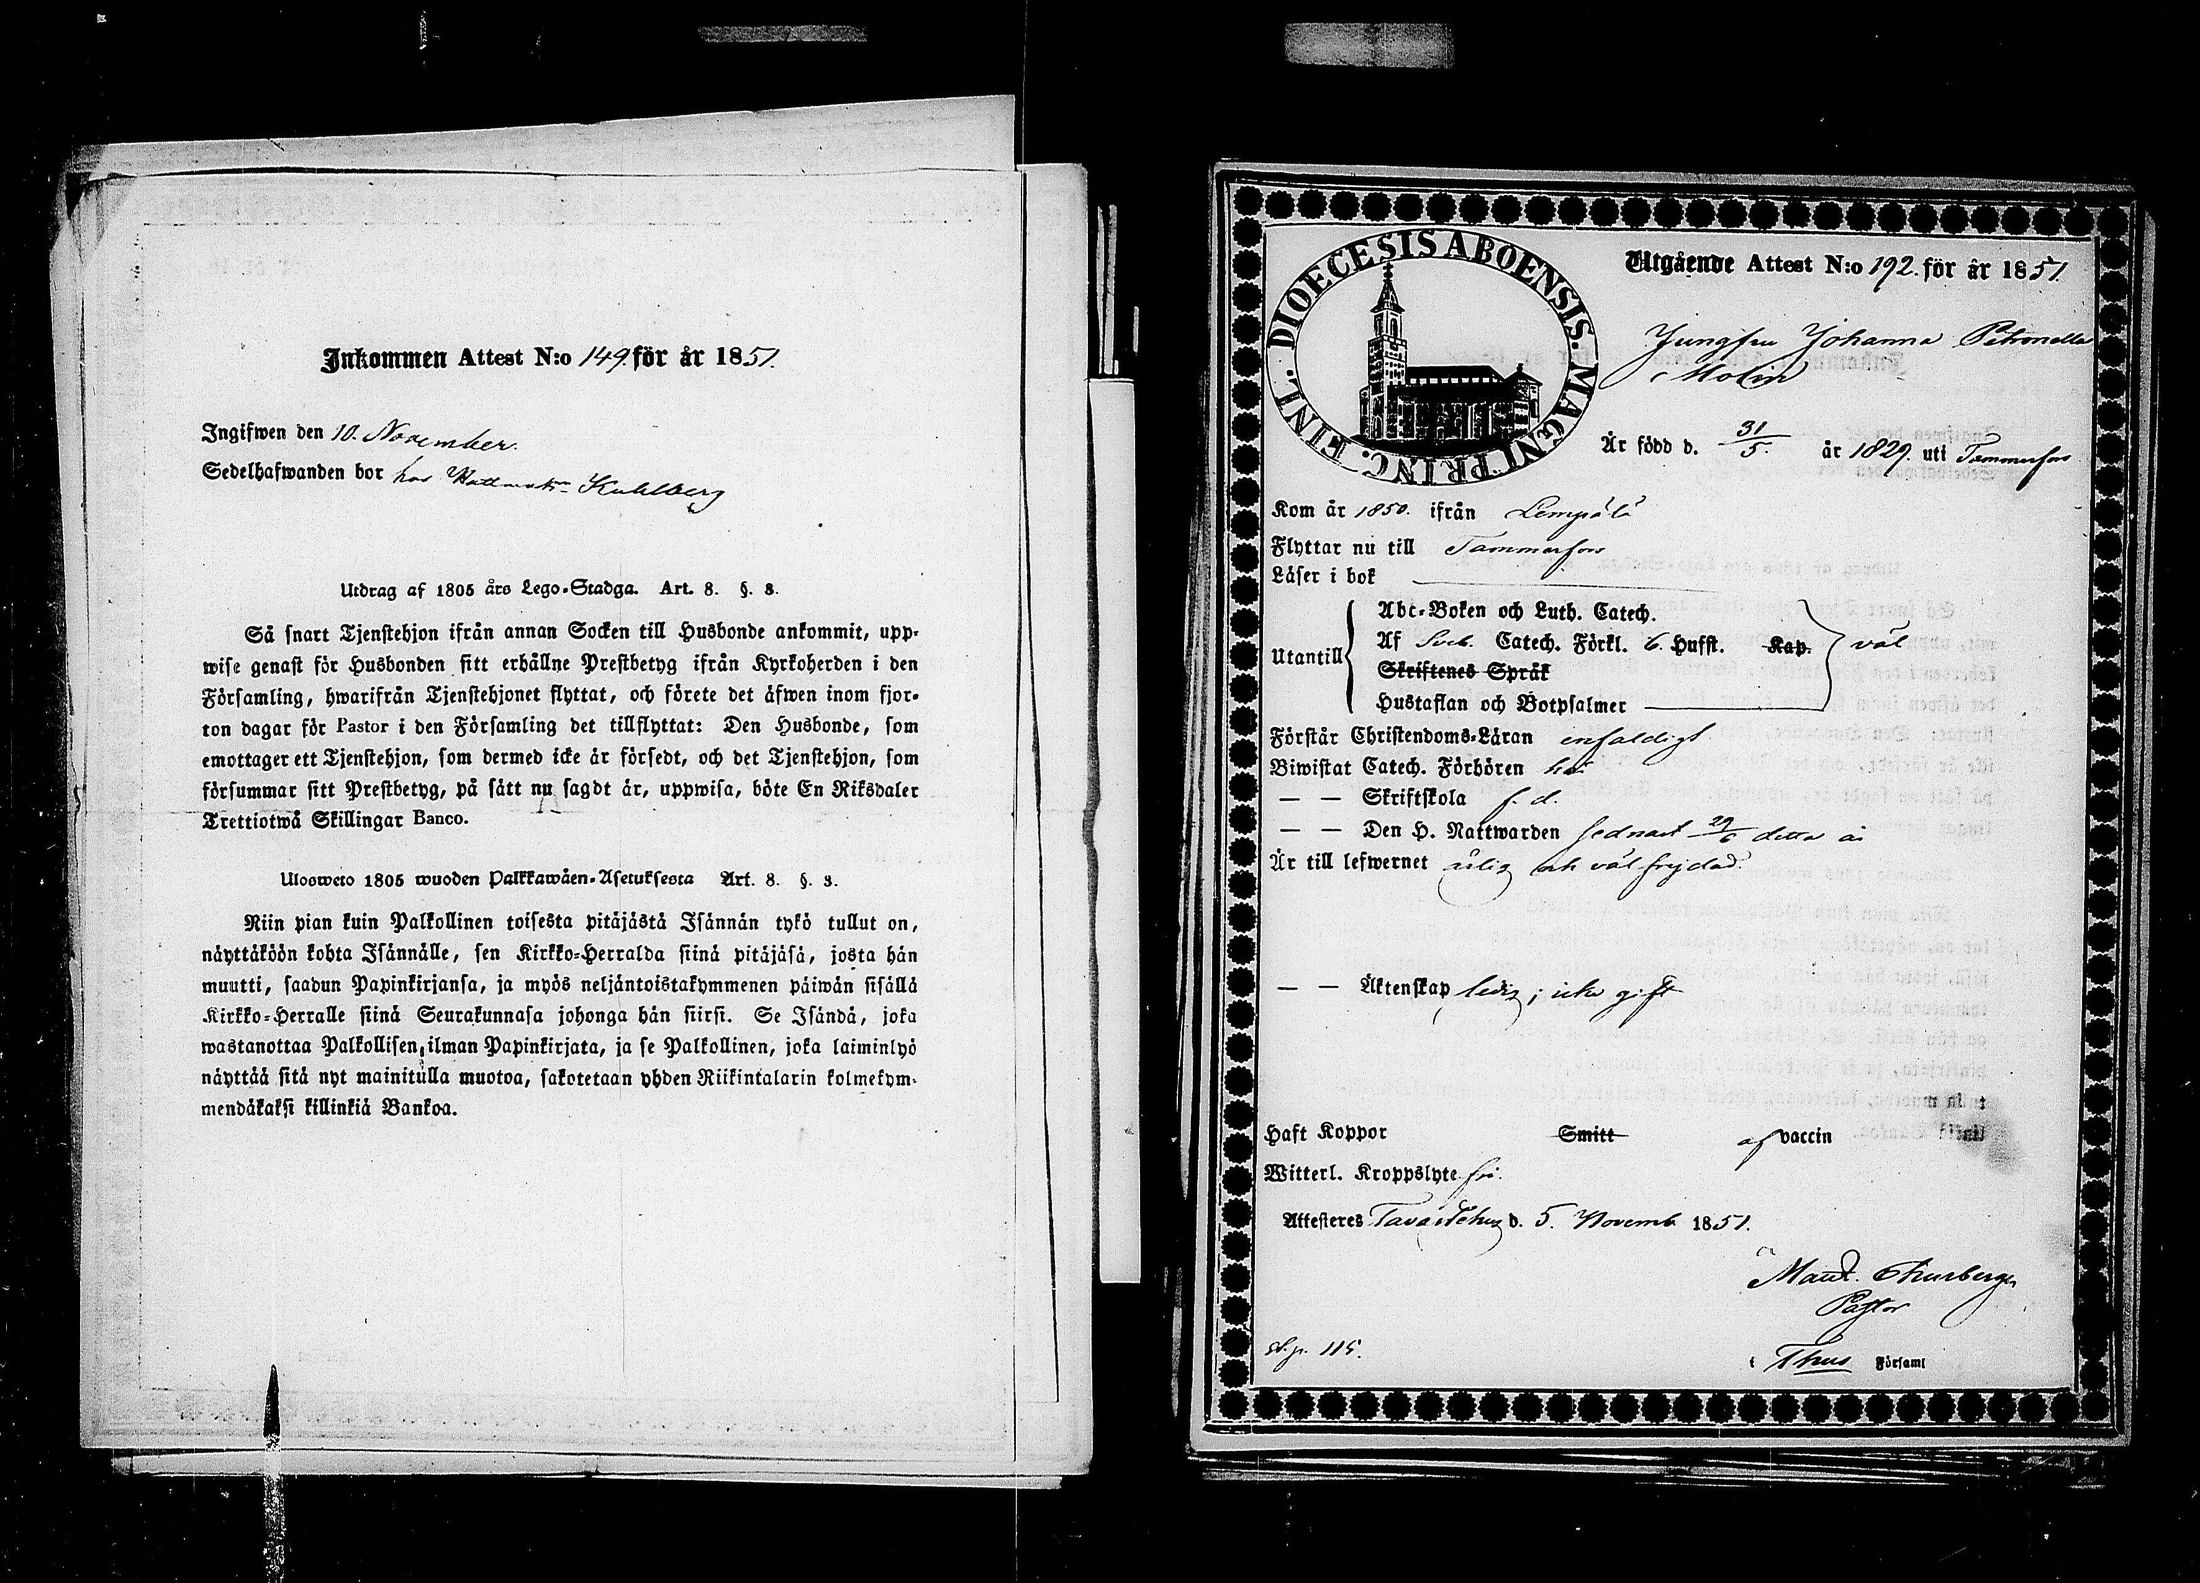 Inkommen Attest N:o 149. för år 1851.
Ingifwen den 10. November.
Sedelhafwanden bor hos Kuhlberg
Utdrag af 1805 års Lego-Stadga. Art. 8. §. 3.
Så snart Tjenstehjon ifrån annan Socken till Husbonde ankommit, upp-
wise genast för Husbonden sitt erhållne Prestbetyg ifrån Kyrkoherden i den
Församling, hwarifrån Tjenstehjonet flyttat, och förete det äfwen inom fjor-
ton dagar för Pastor i den Församling det tillflyttat: Den Husbonde, som
emottager ett Tjenstehjon, som dermed icke är försedt, och det Tjenstehjon, som
försummar sitt Prestbetyg, på sätt nu sagdt är, uppwisa, böte En Riksdaler
Trettiotwå Skillingar Banco.
Ulosweto 1805 wuoden Palkkawäen-Asetuksesta Art. 8. §. 3.
Niin pian kuin Palkollinen toisesta pitäjästä Isännän tykö tullut on,
näyttäköön kohta Isännälle, sen Kirkko-Herralda siinä pitäjäsä, josta hän
muutti, saadun Papinkirjansa, ja myös neljäntoistakymmenen päiwän sisällä
Kirkko-Herralle siinä Seurakunnasa johonga hän siirsi. Se Isändä, joka
wastanottaa Palkollisen, ilman Papinkirjata, ja se Palkollinen, joka laiminlyö
näyttää sitä nyt mainitulla muotoa, sakotetaan yhden Riikintalarin kolmekym-
mendäkaksi killinkiä Bankoa.
DIOECESIS ABOENSIS. MAGNI PRINC. FINL.
Utgående Attest N:o 192. för år 1851.
Jungfru Johanna Petronella
Molin
Är född d. 31/5. år 1829. uti Tammerfors
Kom år 1850. ifrån Lempälä
Flyttar nu till Tammerfors
Läser i bok
Utantill
Abc-Boken och Luth. Catech.
Af Sveb. Catech. Förkl. 6. Hufst. Kap. väl
Skriftenes Språk
Hustaflan och Botpsalmer
Förstår Christendoms-Läran enfaldigt
Biwistat Catech. Förhören har
— — Skriftskola f. d.
— — Den H. Nattwarden sednast 29/6 detta år
Är till lefwernet ärlig och väl frejdad.
— — Äktenskap ledig; icke gift
Haft Koppor Smitt af vaccin
Witterl. Kroppslyte fri.
Attesteres Tavastehus d. 5. Novemb 1851.
Pastor
i Thus Församl
p. 115.